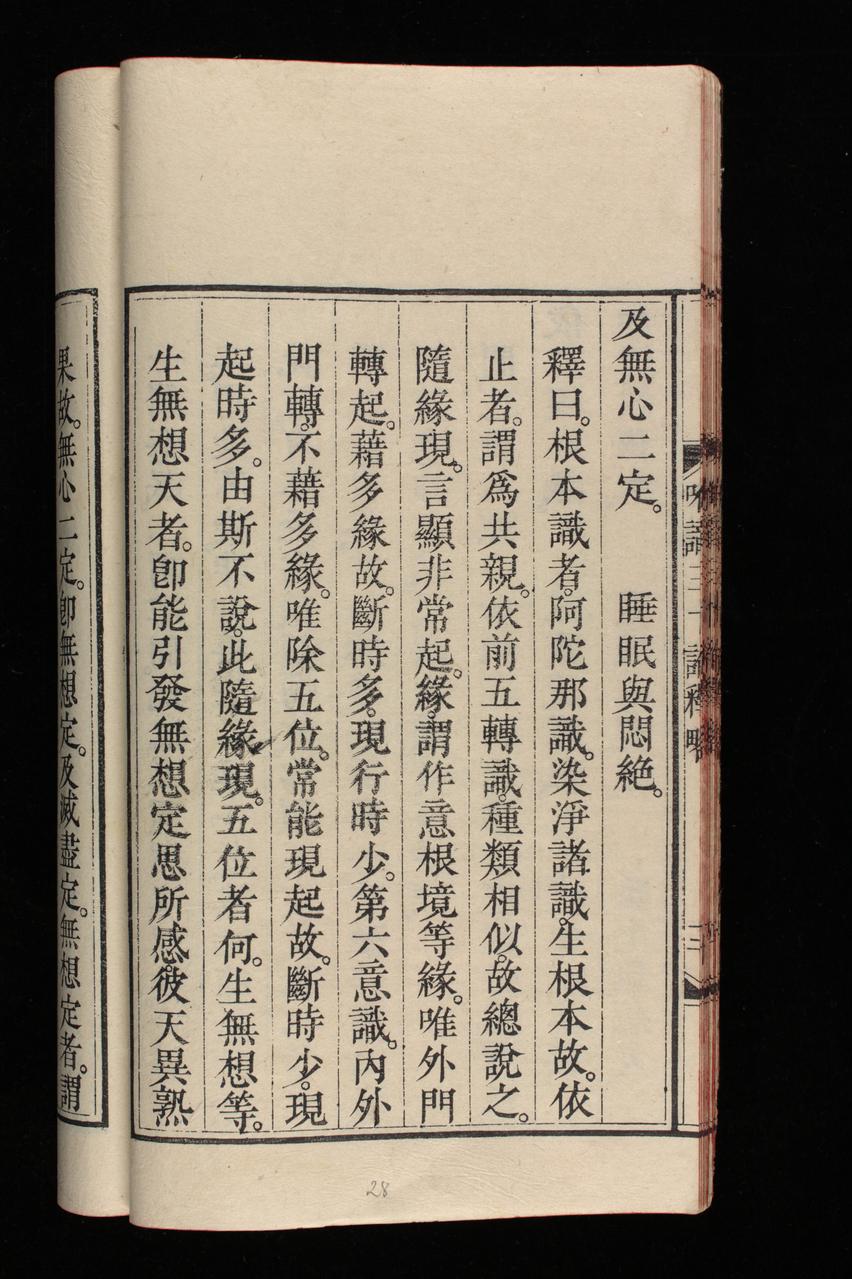 及無心二定。　睡眠與悶絕。
釋曰。根本識者。阿陀那識。染淨諸識。生根本故。依
止者。謂爲共親。依前五轉識。種類相似。故總說之。
隨緣現。言顯非常起。緣謂作意根境等緣。唯外門
轉起。藉多緣故。斷時多。現行時少。第六意識。內外
門轉。不藉多緣。唯除五位。常能現起故。斷時少。現
起時多。由斯不說。此隨緣現。五位者何。生無想等。
生無想天者。卽能引發無想定思所感。彼天異熟
果故。無心二定。卽無想定。及滅盡定。無想定者。謂
唯識三十論釋略
三
28